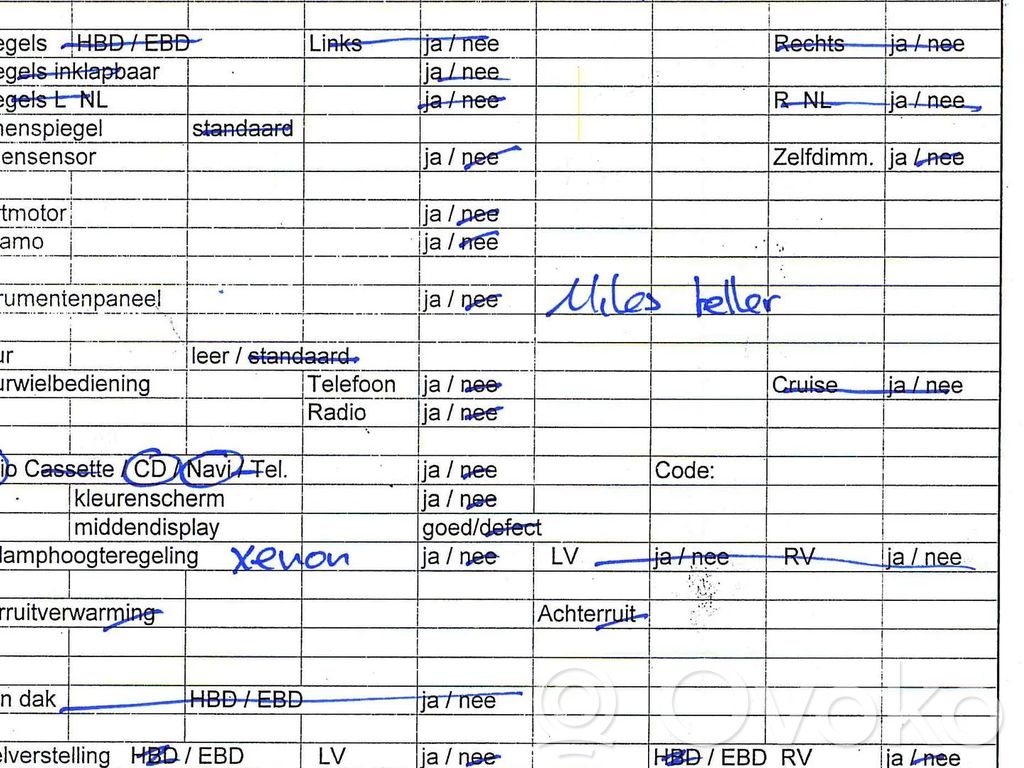 egels HBD / EBD Links ja / nee Rechts ja / nee
egels inklapbaar ja / nee
egels L NL ja / nee R NL ja / nee
nenspiegel standaard
ensensor ja / nee Zelfdimm. ja / nee
tmotor ja / nee
amo ja / nee
rumentenpaneel ja / nee Miles teller
ur leer / standaard
urwielbediening Telefoon ja / nee Cruise ja / nee
Radio ja / nee
io Cassette / CD / Navi / Tel. ja / nee Code:
kleurenscherm ja / nee
middendisplay goed/defect
lamphoogteregeling xenon ja / nee LV ja / nee RV ja / nee
rruitverwarming Achterruit
n dak HBD / EBD ja / nee
elverstelling HBD / EBD LV ja / nee HBD / EBD RV ja / nee
Ovoko